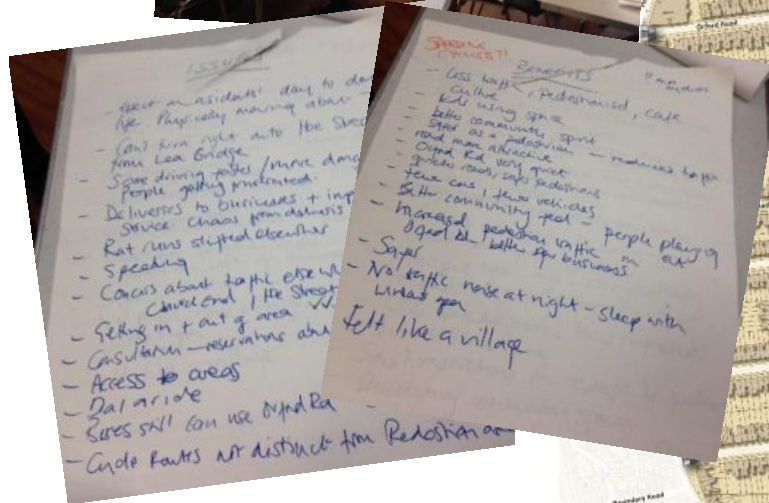 ISSUES
- Effect on residents' day to day
life Physically moving about
- Can't turn right into Hoe Street
from Lea Bridge
- Some driving faster / more
People getting frustrated.
- Deliveries to businesses +
service. Chaos from
- Rat runs shifted elsewhere
- Speeding
- Concerns about traffic else
Church End, Hoe Street
- Getting in + out of area
- Consultation - reservations
- Access to areas
- Dial a ride
- Buses still can use Orford Rd
- Cycle Routes not distinct from Pedestrian
SPEEDING
CYCLISTS?!
BENEFITS
- Less traffic, Pedestrianised, cafe
culture
- Kids using space
- better community spirit
- Safer as a pedestrian —
- road more attractive
- Orford Rd very quiet
- quieter roads, safer pedestrians
- fewer cars, fewer vehicles
- Better community feel - people playing out
- Increased pedestrian traffic in
Orford Rd. better for businesses
- Safer
- No traffic noise at night - sleep with
windows open
Felt like a village
Orford Road
Boundary Road